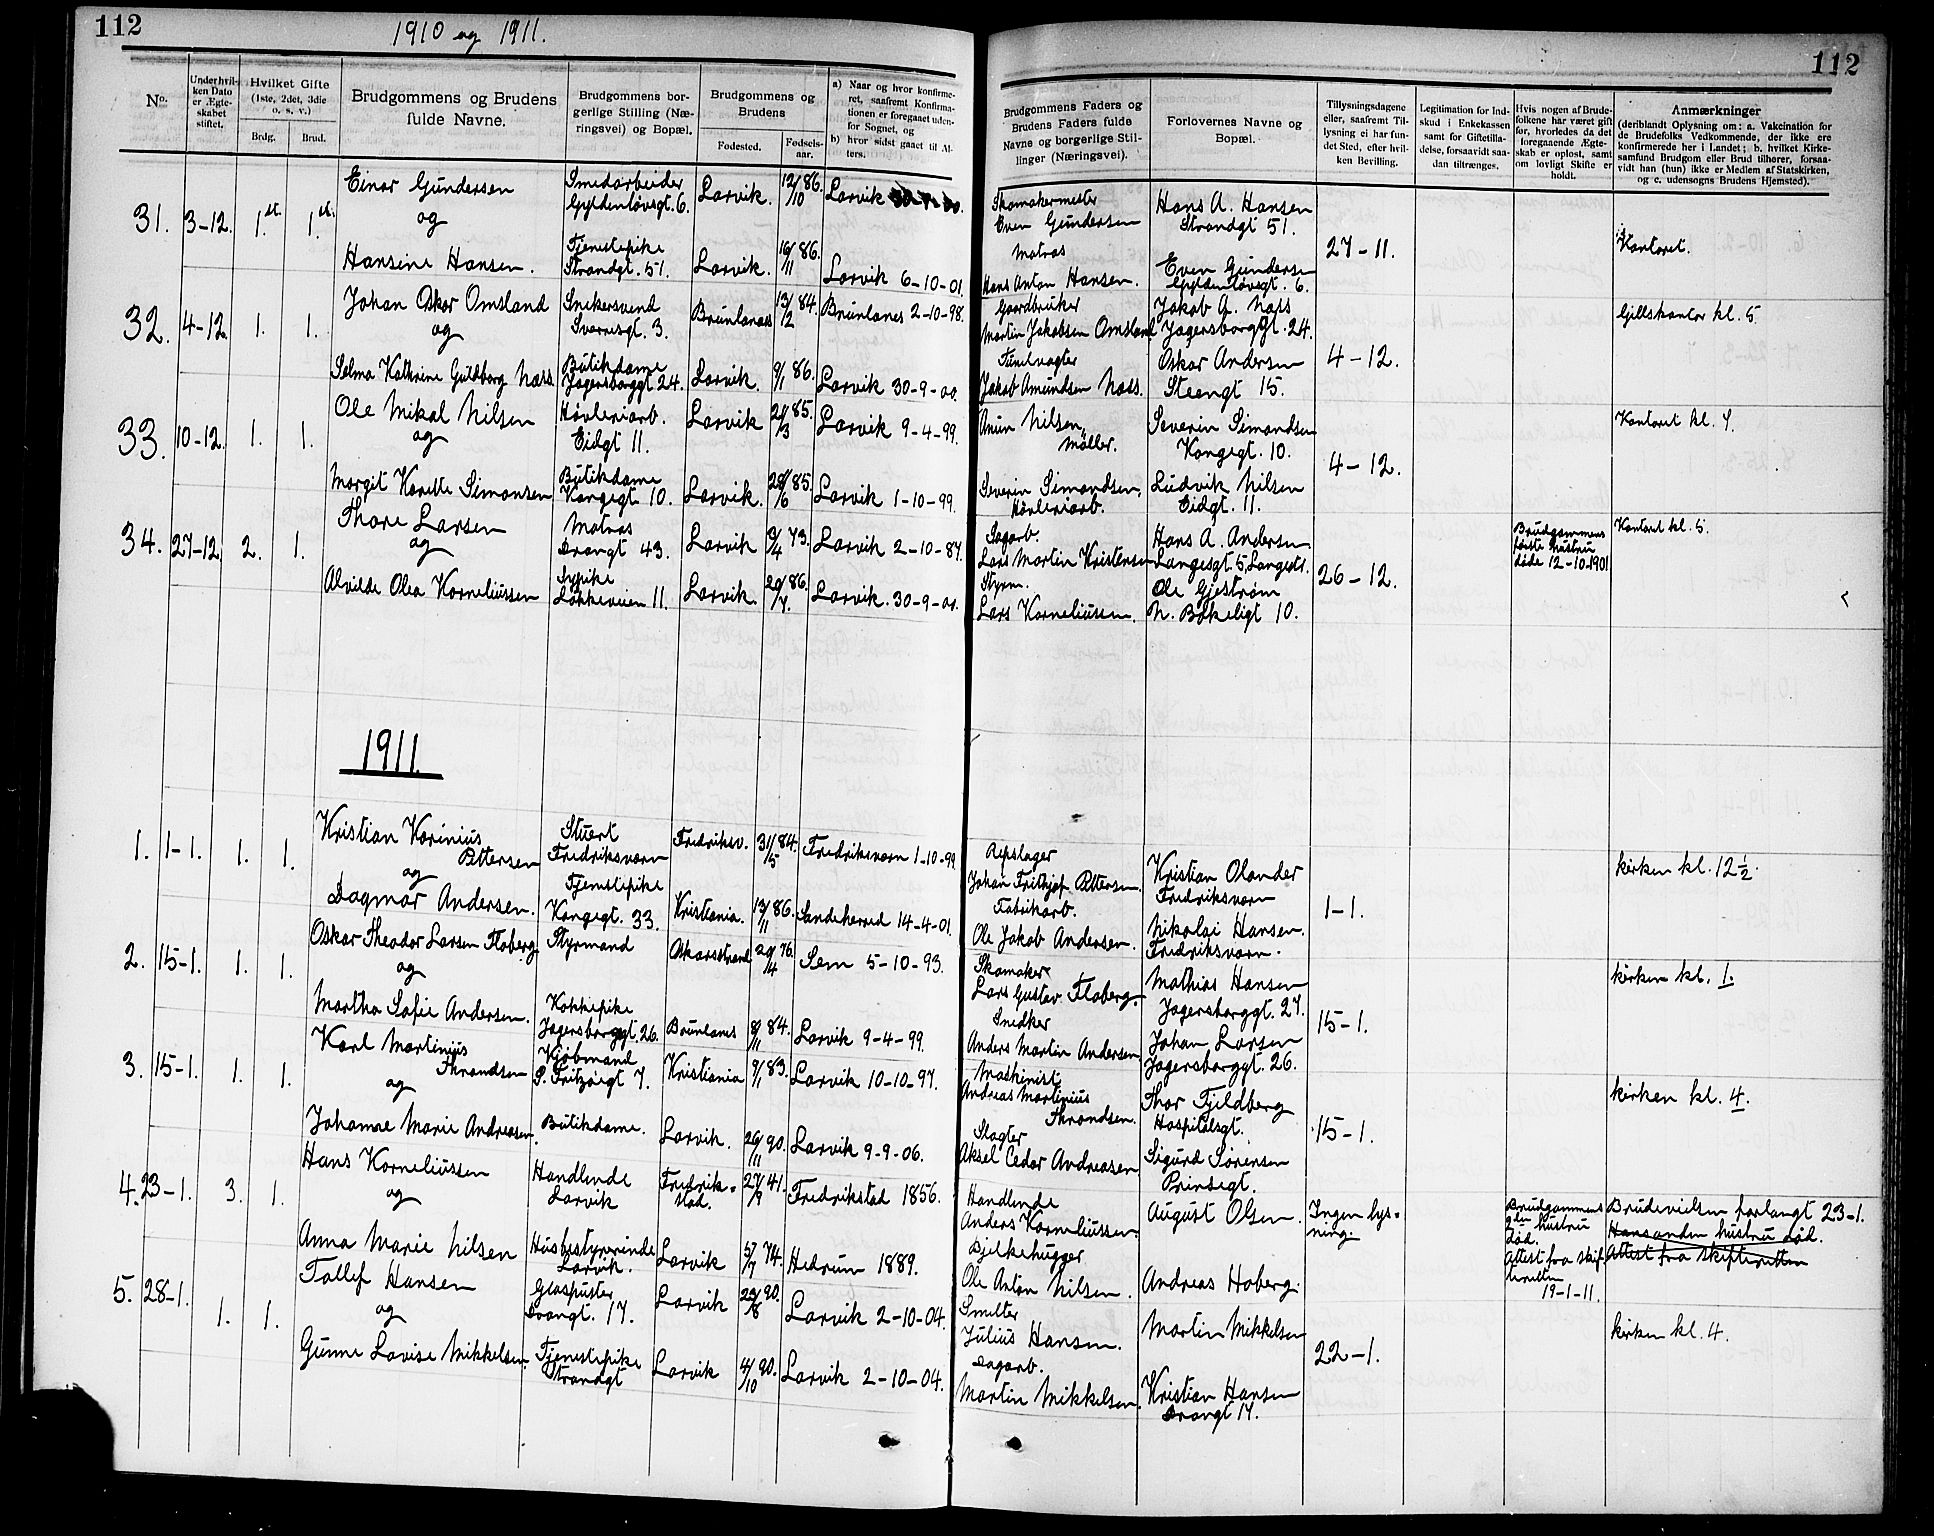 112
1910 og 1911.
112
No.
Underhvilken Dato er Ægteskabet stiftet.
Hvilket Gifte (1ste, 2det, 3die o. s. v.)
Brdg.
Brud.
Brudgommens og Brudens fulde Navne.
Brudgommens borgerlige Stilling (Næringsvei) og Bopæl.
Brudgommens og Brudens
Fødested.
Fødselsaar.
a) Naar og hvor konfirmeret, saafremt Konfirmationen er foregaaet udenfor Sognet, og
b) hvor sidst gaaet til Alters.
Brudgommens Faders og Brudens Faders fulde Navne og borgerlige Stillinger (Næringsvei).
Forlovernes Navne og Bopæl.
Tillysningsdagene eller, saafremt Tillysning ei har fundet Sted, efter hvilken Bevilling.
Legitimation for Indskud i Enkekassen samt for Giftetilladelse, forsaavidt saadan tiltrænges.
Hvis nogen af Brudefolkene har været gift før, hvorledes da det foregaaende Ægteskab er opløst, samt om lovligt Skifte er holdt.
Anmærkninger
(deriblandt Oplysning om: a. Vakcination for de Brudefolks Vedkommende, der ikke ere konfirmerede her i Landet; b. hvilket Kirkesamfund Brudgom eller Brud tilhører, forsaavidt han (hun) ikke er Medlem af Statskirken, og c. udensogns Brudens Hjemsted).
31. 3-12. 1.st. 1.st. Einar Gundersen Smedarbeider Gyldenløvsgt. 6. Larvik. 12/10 86. Larvik Skomakermester Even Gundersen Hans A. Hansen Strandgt 51.
og 27-11. Kontoret.
Hansine Hansen. Tjenestepike Strandgt. 51. Larvik. 16/11 86. Larvik 6-10-01. Matros Hans Anton Hansen. Even Gundersen Gyldenløvsgt. 6.
32. 4-12. 1. 1. Johan Oskar Omsland Snekersvend Sverresgt. 3. Brunlanes 13/2 84. Brunlanes 2-10-98. Gaardbruker Martin Jakobsen Omsland Jakob A. Næss Jegersborggt. 24. Gillskontor kl. 5.
og 4-12.
Selma Kathrine Guldborg Næss. Butikdame Jegersborggt 24. Larvik. 9/1 86. Larvik 30-9-00. Jakob Amundsen Næss. Oskar Andersen Steengt 15.
33. 10-12. 1. 1. Ole Mikal Nilsen Høvleriarb. Eidgt 11. Larvik 21/3 85. Larvik 9-4-99. Nilsen, Møller. Severin Simonsen Kongegt. 10. Kontoret kl. 7.
og 4-12.
Margit Karette Simonsen Butikdame Kongegt 10. Larvik. 28/6 85. Larvik 1-10-99. Severin Simondsen, Høvleriarb. Ludvik Nilsen Eidgt. 11.
34. 27-12. 2. 1. Thore Larsen Matros Trangt 43. Larvik 9/4 73. Larvik 2-10-87. Sagarb. Lars Martin Kristensen Hans A. Andersen Langesgt. 5, Langest. Brudgommens første hustru døde 12-10-1901 Kontoret kl. 5.
og 26-12.
Alvilde Olea Korneliussen Sypike Løkkeveien 11. Larvik. 20/7 86. Larvik. 30-9-00. Styrm. Lars Korneliussen. Ole Gjestrøm N. Bøkeligt 10.
1911.
1. 1-1. 1. 1. Kristian Karinius Pettersen Stuert Fredriksværn Fredriksv. 31/5 84. Fredriksværn 1-10-99 Repslager Johan Frithjof Pettersen. Kristian Olander Fredriksværn kirken kl. 12 1/2.
og 1-1.
Dagmar Andersen. Tjenestepike Kongegt. 33. Kristiania. 13/11 86. Sandeherred 14-4-01. Fabrikarb. Ole Jakob Andersen. Nikolai Hansen. Fredriksværn.
2. 15-1. 1. 1. Oskar Theodor Larsen Floberg Styrmand Aasgaardstrand 20/4 76. Sem 5-10-93. Skomaker Lars Gustav. Floberg. Mathias Hansen Jegersborggt. 27. kirken kl. 1.
og 15-1.
Martha Sofie Andersen. Kokkepike Jegersborggt. 26. Brunlanes 8/11 84. Larvik 9-4-99. Snedker Anders Martin Andersen Johan Larsen Jegersborggt. 26.
3. 15-1. 1. 1. Karl Martinius Throndsen Kjøbmand P. Fritzøigt 7. Kristiania 9/1 83. Larvik 10-10-97. Maskinist Andreas Martinius Throndsen. Thor Fjeldberg Hospitalsgt. kirken kl. 4.
og 15-1.
Johanne Marie Andreasen. Butikdame. Larvik. 26/11 90. Larvik 9-9-06. Slagter Aksel Cedor Andreasen Sigurd Sørensen Prinsegt.
4. 23-1. 3. 1. Hans Korneliussen Handlende Larvik Fredrikstad. 27/9 41. Fredrikstad 1856. Handlende Anders Korneliussen. August Olsen. Ingen lysning. Brudgommens 2den hustru død. Attest fra skifteretten 19-1-11. Brudevielsen forlangt 23-1. Hans anden hustru død. Attest fra skifteretten
og
Anna Marie Nilsen Husbestyrerinde Larvik. Larvik 5/7 74. Hedrum 1889. Bjelkehugger Ole Anton Nilsen. Andreas Hoberg.
5. 28-1. 1. 1. Tollef Hansen Glaspuster Trangt. 17. Larvik 29/8 90. Larvik 2-10-04. Smelter Julius Hansen. Martin Mikkelsen kirken kl. 4.
og 22-1.
Gunne Lovise Mikkelsen. Tjenestepike Strandgt Larvik 4/10 90. Larvik 2-10-04. Sagarb. Martin Mikkelsen. Kristian Hansen Trangt 17.